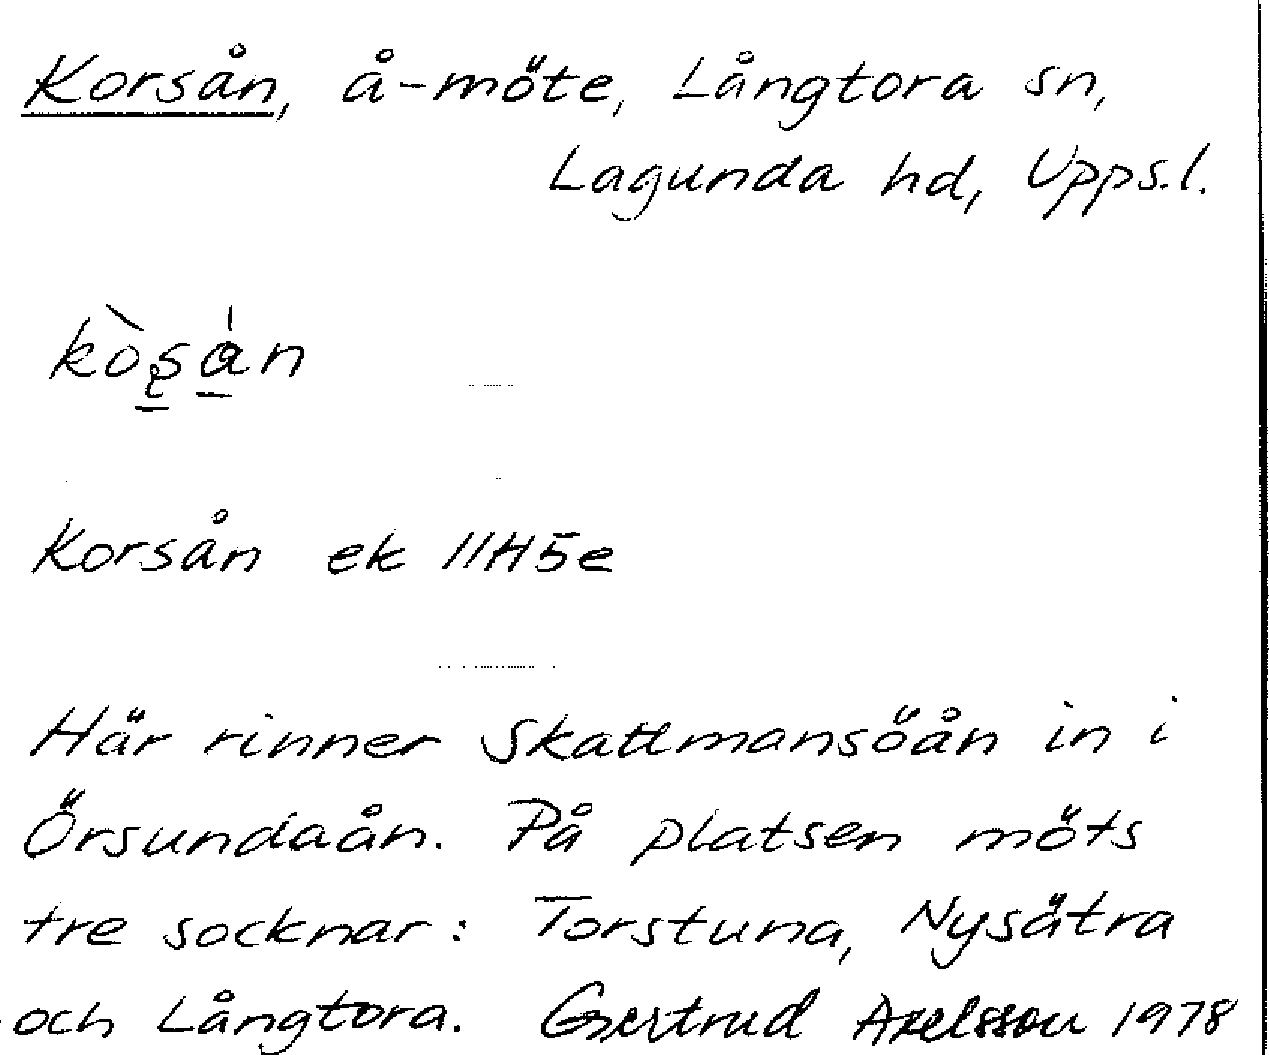 Korsån, å-möte, Långtora sn,
Lagunda hd, Upps.l.
kòʂán
Korsån ek 11H5e
Här rinner Skattmansöån in i
Örsundaån. På platsen möts
tre socknar: Torstuna, Nysätra
och Långtora. Gertrud Axelsson 1978